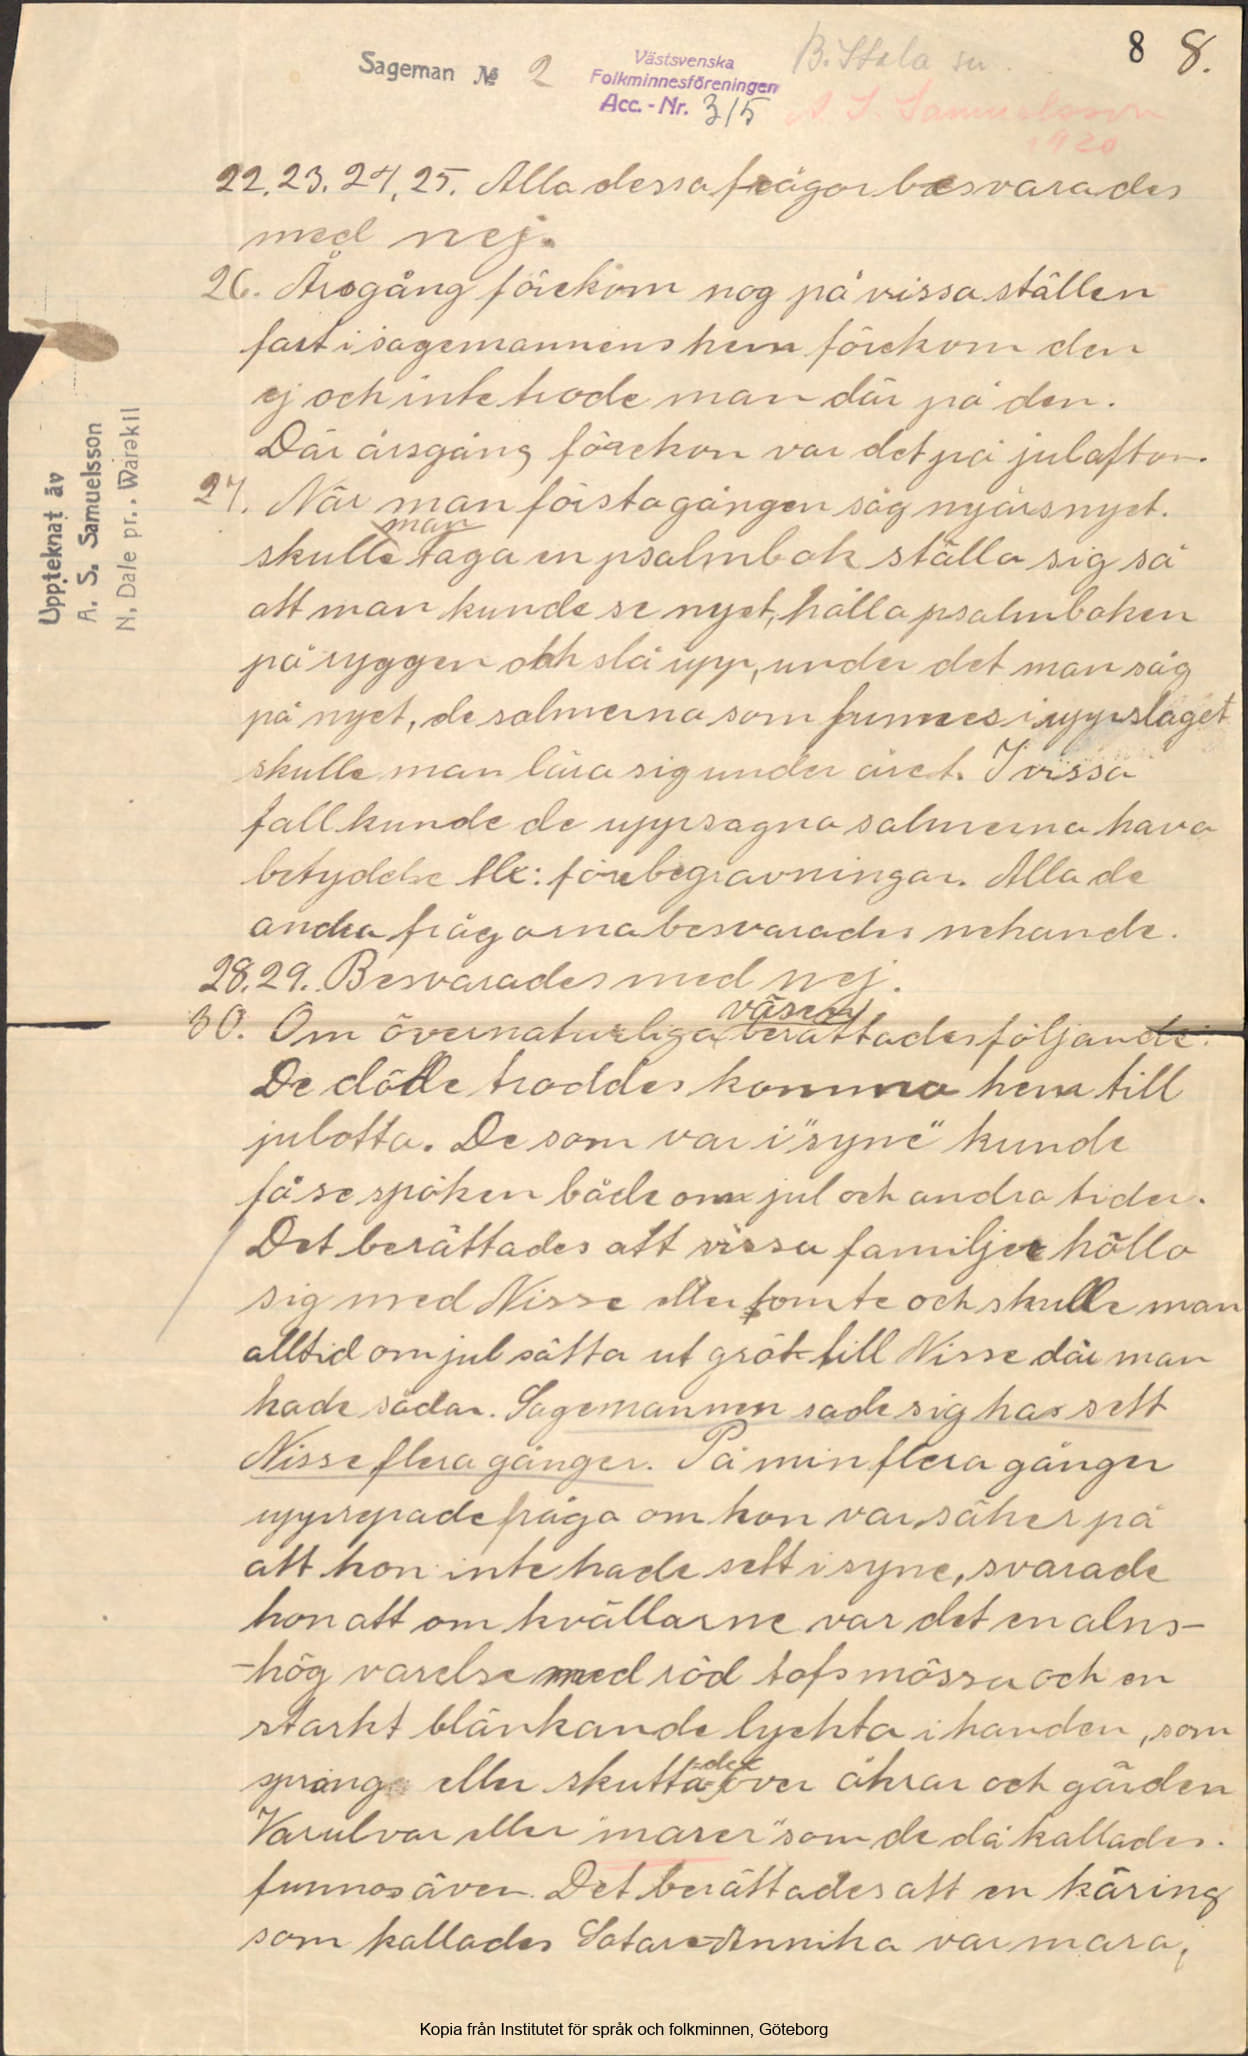 Sageman № 2
Västsvenska
Folkminnesföreningen
Acc.-Nr. 315
B. Stala sn.
8 8.
A. S. Samuelsson
1920
Uppteknat äv
A. S. Samuelsson
N. Dale pr.. Wärakil
22. 23. 24. 25. Alla dessa frågor besvarades
med nej.
26. Årsgång förekom nog på vissa ställen
fast i sagemannens hem förekom den
ej och inte trode man där på den.
Där årsgång förekom var det på julafton.
27. När man första gången såg nyårsnyet.
skulle man taga en psalmbok ställa sig så
att man kunde se nyet, hålla psalmboken
på ryggen och slå upp, under det man såg
på nyet, de salmerna som funnes i uppslaget
skulle man lära sig under året. I vissa
fall kunde de uppsagna salmerna hava
betydelse t.ex: före begravningar. Alla de
andra frågorna besvarades nekande.
28. 29. Besvarades med nej.
30. Om övernaturliga väsen berättades följande:
De döde troddes komma hem till
julotta. De som var i "syne" kunde
få se spöken både om jul och andra tider.
Det berättades att vissa familjer höllo
sig med Nisse eller tomte och skulle man
alltid om jul sätta ut gröt till Nisse där man
hade sådan. Sagemannen sade sig ha sett
Nisse flera gånger. På min flera gånger
upprepade fråga om hon var säker på
att hon inte hade sett i syne, svarade
hon att om kvällarne var det en alns-
-hög varelse med röd tofsmössa och en
starkt blänkande lyckta i handen, som
sprang eller skuttade över åkrar och gärden
Varulvar eller "marer" som de då kallades.
funnos även. Det berättades att en käring
som kallades Sotare-Annika var mara,
Kopia från Institutet för språk och folkminnen, Göteborg